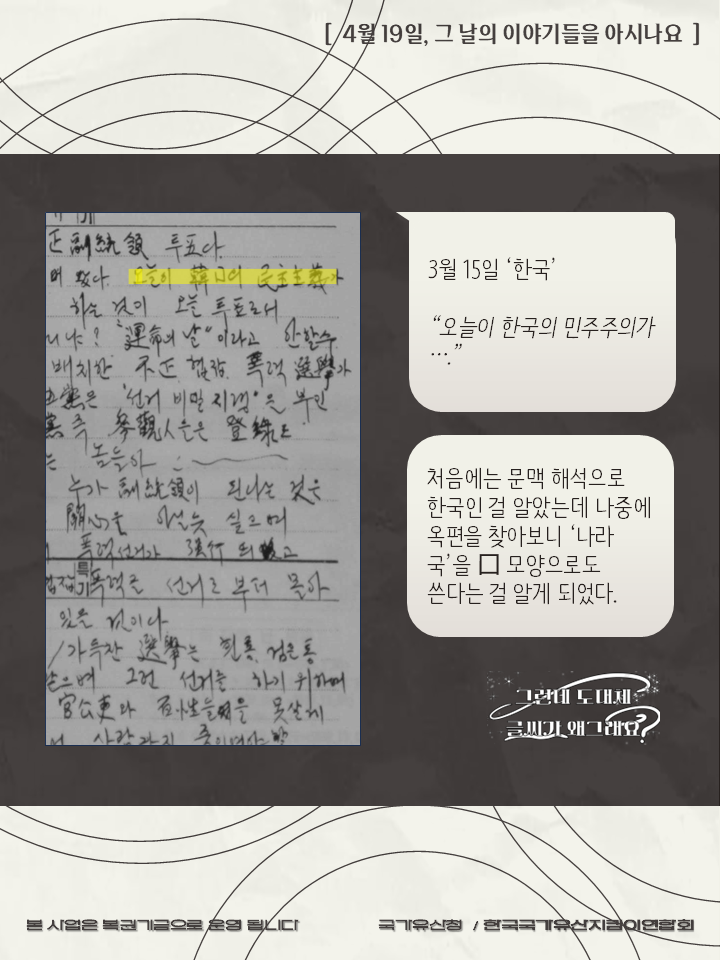 [ 4월 19일, 그 날의 이야기들을 아시나요 ]
正副統領 투표다.
며 왔다. 오늘이 韓口의 民主主義가
하는 것이 오늘 투표로서
니냐? "運命의 날"이라고 안할수
배치한 不正 협잡 폭력 選擧가
主黨은 "선거 비밀 지령"은 부인
黨 즉 參觀人들은 登錄도
는 놈들아
누가 副統領이 된다는 것은
關心을 싶으며
폭력선거가 强行 되 고
특기
폭력으로 선거로 부터 몰아
있을 것이다
/가득찬 選擧는
으며 그런 선거를 하기 위하여
官公吏와 못살게
3월 15일 ‘한국’
“오늘이 한국의 민주주의가
….”
처음에는 문맥 해석으로
한국인 걸 알았는데 나중에
옥편을 찾아보니 ‘나라
국’을 口 모양으로도
쓴다는 걸 알게 되었다.
그런데 도대체
글씨가 왜그래요?
본 사업은 복권기금으로 운영 됩니다
국가유산청 / 한국국가유산지킴이연합회